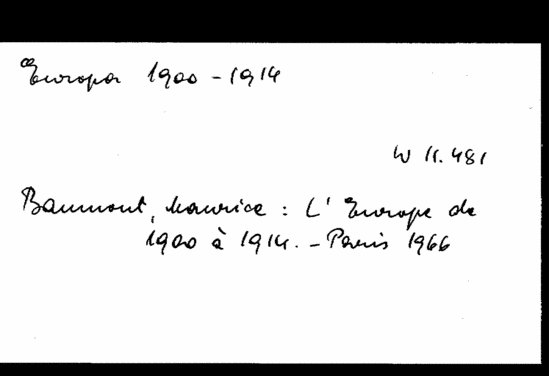 Europa 1900-1914
W 11.481
Baumont, Maurice: L'Europe de
1900 à 1914. - Paris 1966